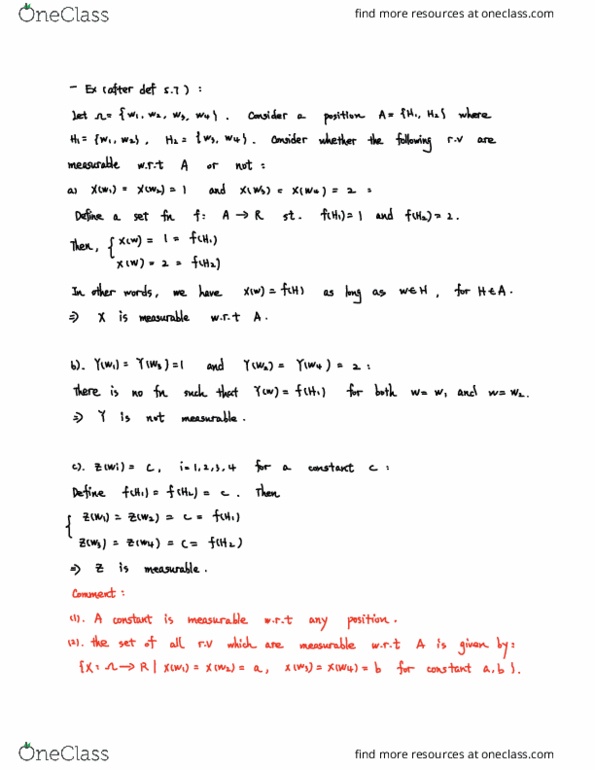 OneClass
find more resources at oneclass.com
- Ex (after def 5.7) :
Let Ω = {w₁, w₂, w₃, w₄}. Consider a position A = {H₁, H₂} where
H₁ = {w₁, w₂}, H₂ = {w₃, w₄}. Consider whether the following r.v are
measurable w.r.t A or not :
a) X(w₁) = X(w₂) = 1 and X(w₃) = X(w₄) = 2 :
Define a set fn f: A → R st. f(H₁) = 1 and f(H₂) = 2.
Then, { X(w) = 1 = f(H₁)
X(w) = 2 = f(H₂)
In other words, we have X(w) = f(H) as long as w∈H, for H∈A.
⇒ X is measurable w.r.t A.
b). Y(w₁) = Y(w₃) = 1 and Y(w₂) = Y(w₄) = 2 :
There is no fn such that Y(w) = f(H₁) for both w = w₁ and w = w₂.
⇒ Y is not measurable.
c). Z(wi) = c, i = 1,2,3,4 for a constant c :
Define f(H₁) = f(H₂) = c. Then
{ Z(w₁) = Z(w₂) = c = f(H₁)
Z(w₃) = Z(w₄) = c = f(H₂)
⇒ Z is measurable.
Comment :
(1). A constant is measurable w.r.t any position.
(2). the set of all r.v which are measurable w.r.t A is given by:
{X: Ω → R | X(w₁) = X(w₂) = a, X(w₃) = X(w₄) = b for constant a, b}.
OneClass
find more resources at oneclass.com